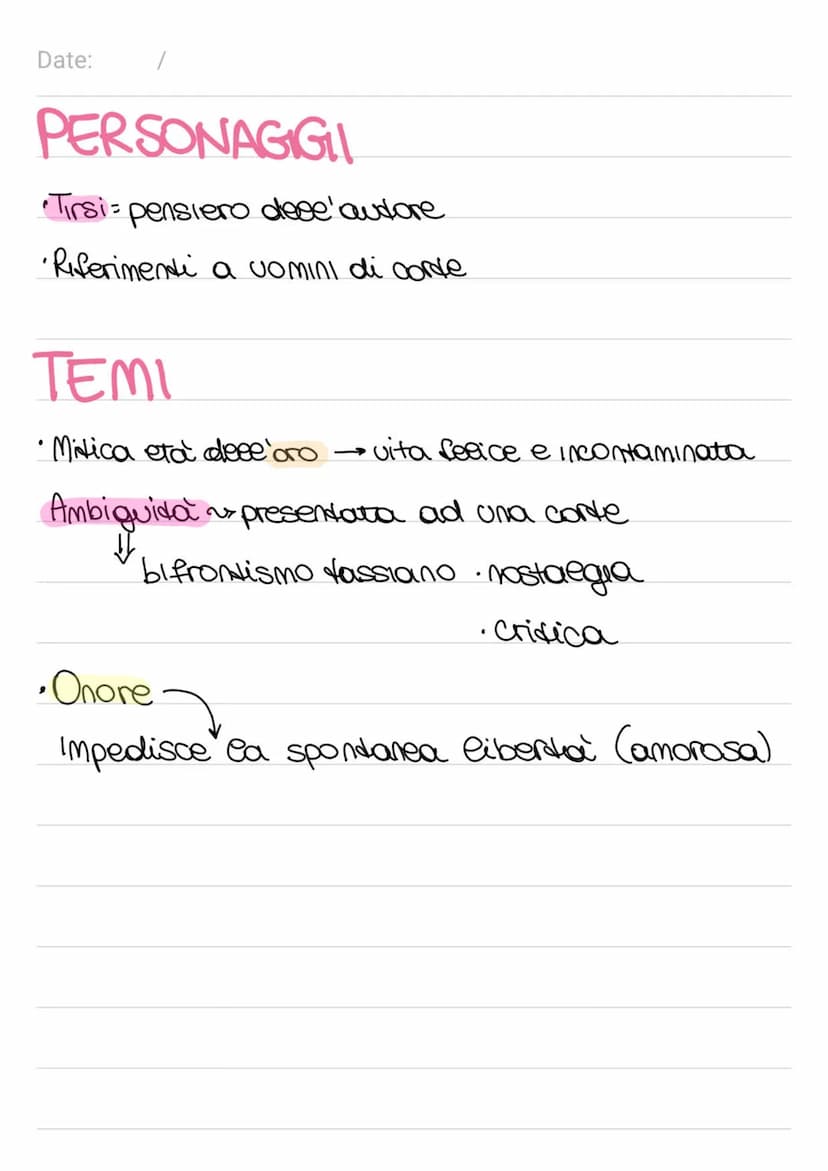 Date: /
PERSONAGGI
·Tirsi = pensiero dell'autore
·Riferimenti a uomini di corte
TEMI
·Mitica età dell'oro → vita felice e incontaminata
Ambiguità ~> presentata ad una corte
⇓
bifrontismo tassiano ·nostalgia
·critica
·Onore
impedisce la spontanea libertà (amorosa)